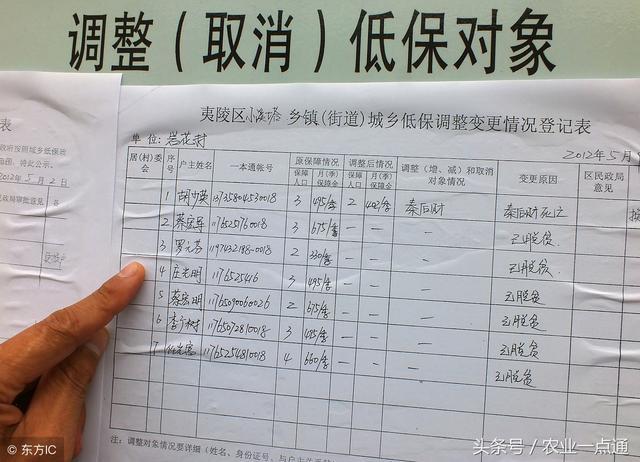 调整（取消）低保对象
表
政府按照城乡低保政
2012年5月2日
民政局审批意见
夷陵区小溪塔乡镇(街道)城乡低保调整变更情况登记表
单位:岩花村
2012年5月
居(村)委会 序号 户主姓名 一本通帐号 原保障情况 调整后情况 调整（增、减）和取消对象情况 变更原因 区民政局意见
保障人口 月(季)保障金 保障人口 月(季)保障金
1 13735804530018 3 495/季 2 秦后财 秦后财死亡
2 蔡宏寻 1176525760018 3 675/季 — — — 已脱贫
3 罗元芬 1197432188-0018 2 330/季 — — — 已脱贫
4 庄光明 1176525416 3 495/季 — — — 已脱贫
5 蔡宏明 11765090060026 2 675/季 — — — 已脱贫
6 11765072810018 3 495/季 — — — 已脱贫
7 11765254810018 4 660/季 — — — 已脱贫
注：调整对象情况要详细（姓名、身份证号、与户主关系
© 东方IC
头条号／农业一点通